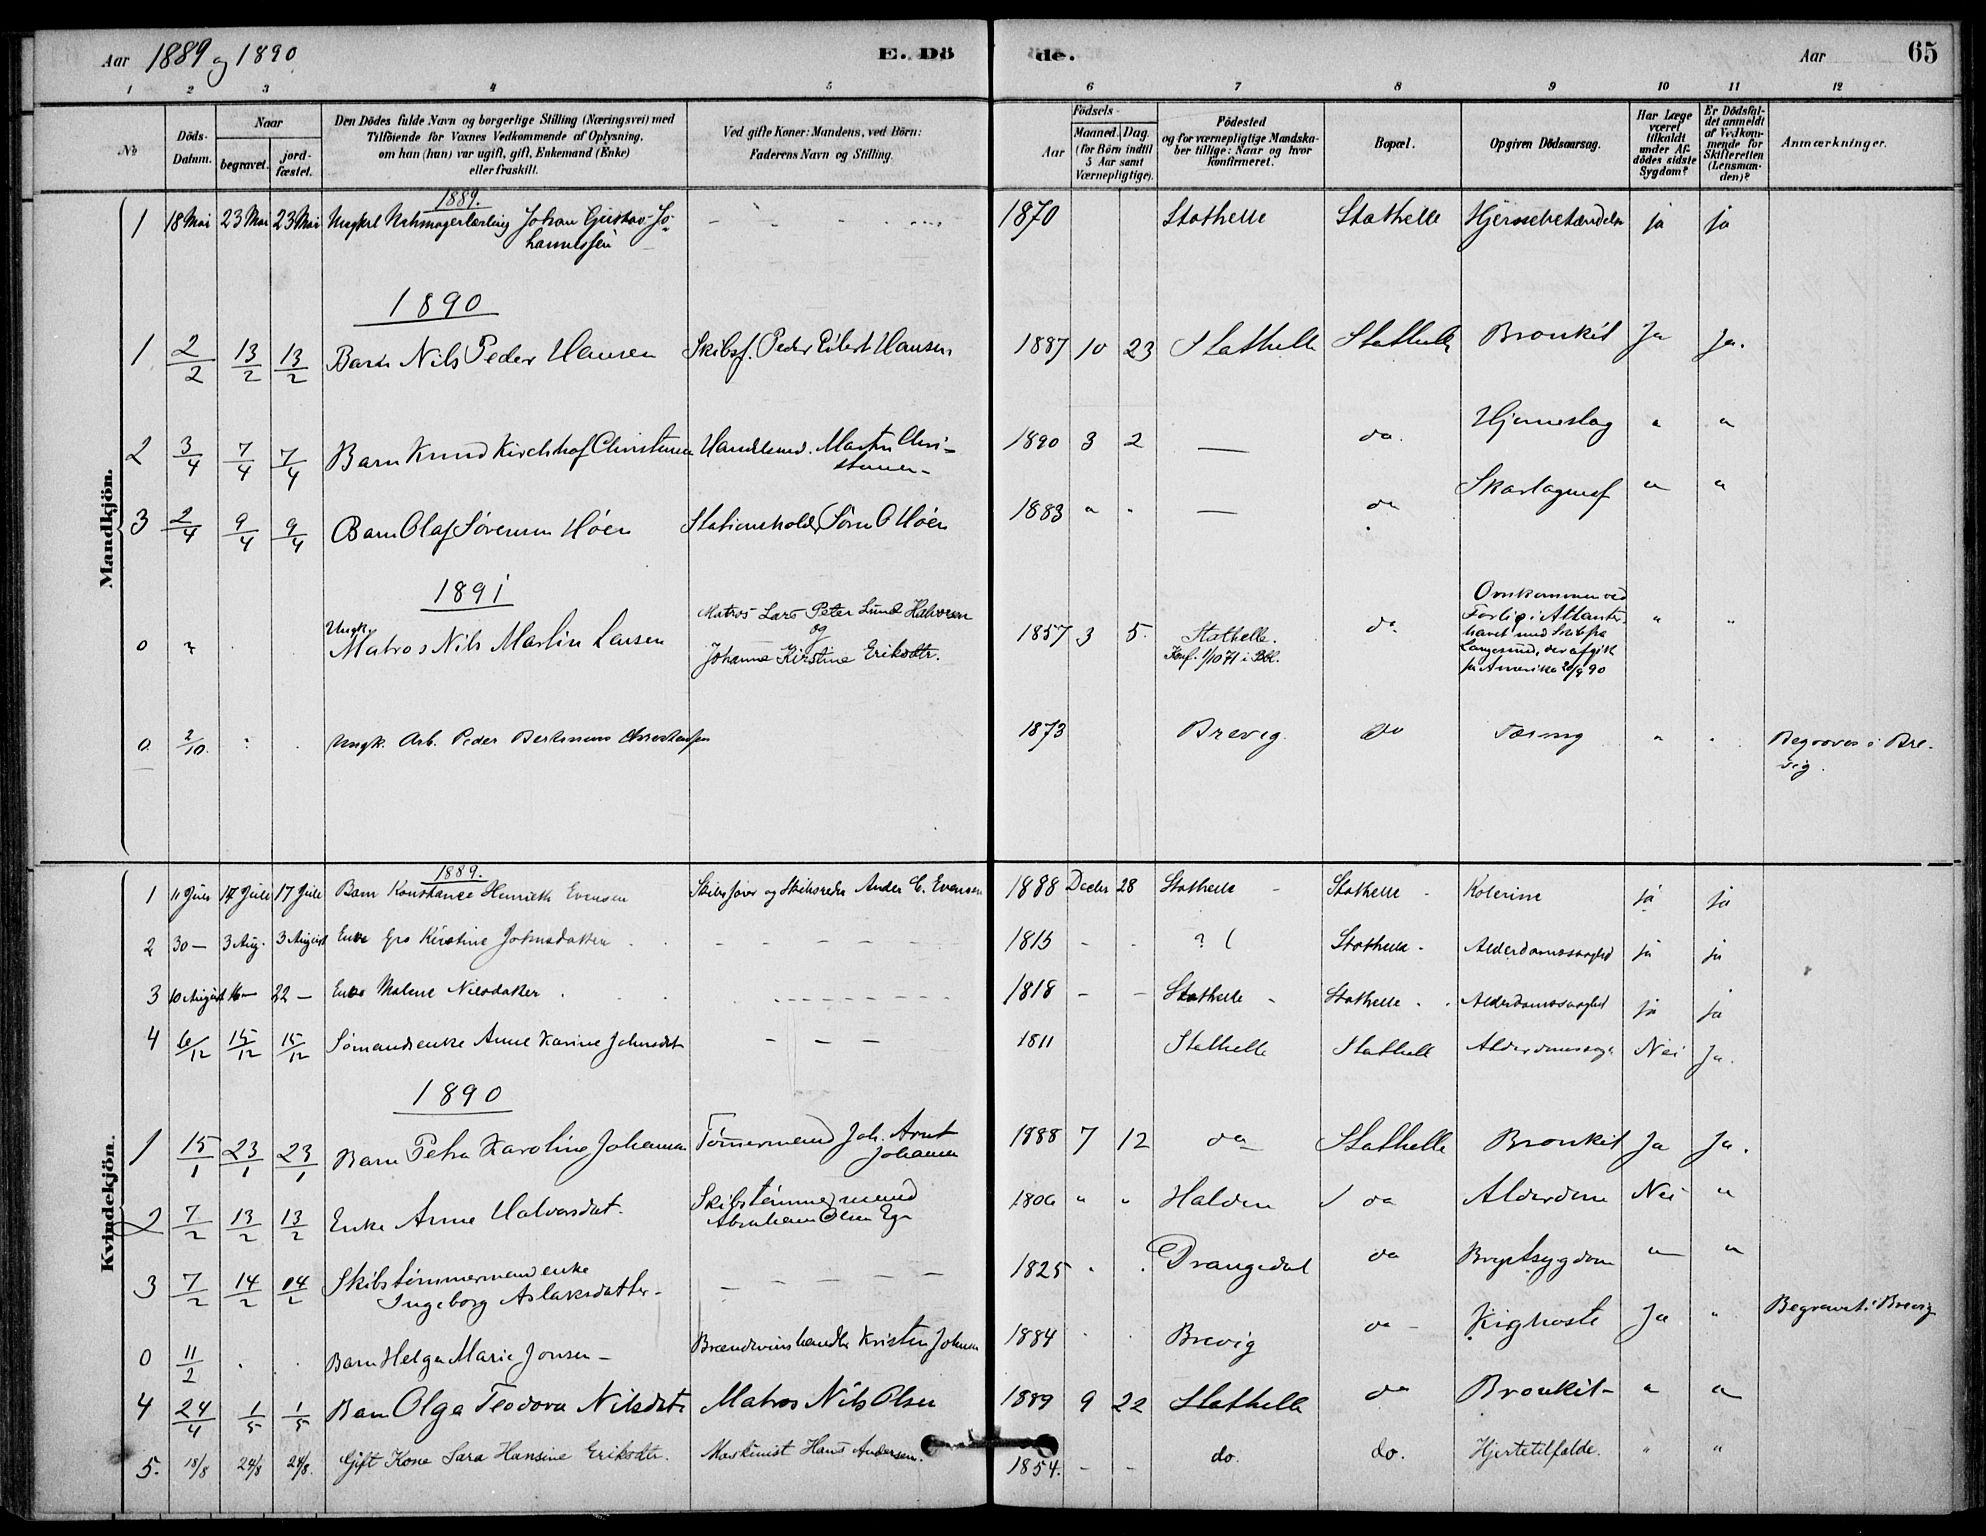 Aar 1889 og 1890
E. Dö
de.
Aar
65
1 2 3 4 5 6 7 8 9 10 11 12
No
Döds-Datum.
Naar
begravet.
jord-fæstet.
Den Dödes fulde Navn og borgerlige Stilling (Næringsvei) med
Tilföiende for Voxnes Vedkommende af Oplysning,
om han (hun) var ugift, gift, Enkemand (Enke)
eller fraskilt.
Ved gifte Koner: Mandens, ved Börn:
Faderens Navn og Stilling.
Födsels-
Aar
Maaned. Dag.
(for Börn indtil
5 Aar samt
Værnepligtige).
Födested
og for værnepligtige Mandska-
ber tillige: Naar og hvor
konfirmeret.
Bopæl.
Opgiven Dödsaarsag.
Har Læge
været
tilkaldt
under Af-
dödes sidste
Sygdom?
Er Dödsfal-
det anmeldt
af Vedkom-
mende for
Skifteretten
(Lensman-
den)?
Anmærkninger.
Mandkjön.
1889.
1 18 Mai 23 Mai 23 Mai Ungkarl Johan Gustav Jo-
hannessen
1870 Stathelle Stathelle ja ja
1890
1 2/2 13/2 13/2 Barn Nils Peder Hansen Skibsf. Peder Eilert Hansen 1887 10 23 Stathelle Stathelle Bronkit Ja Ja.
2 3/4 7/4 7/4 Barn Knud Kirchhof Christensen Martin Chri-
stensen 1890 3 2 — do. Hjerneslag " "
3 2/4 9/4 9/4 Barn Olaf Sørensen Høen Stationsholder Søren O Høen 1883 " " — do " "
1891
0 ? Ungk.
Matros Nils Martin Larsen
Matros Lars Peter Lund Halvorsen
og
Johanne Kirstine Eriksdtr.
1857 3 5. Stathelle.
Konf. 1/10 71 i Bbl.
do.
Omkommen ved
Forlis i Atlanter-
havet med Skib fra
Langesund, der afgik
fra Amerika 20/9 90
" "
0 2/10. Ungk. Arb. Peder Christensen 1873 Brevig do Tæring " " Begraves i Bre-
vig.
Kvindekjön.
1889.
1 11 Juli 17 Juli 17 Juli Barn Konstance Henriette Evensen Skibsfører og Skibsreder Anders C. Evensen 1888 Decbr 28 Stathelle Stathelle Kolerine ja ja
2 30 — 3 Aug. 3 August Enke Gro Kirstine Johnsdatter 1815 ? Stathelle Alderdomssvaghed ja ja
3 10 August 16 — 22 — Enke Malene Nilsdatter 1818 — — Stathelle Stathelle Alderdomssvaghed ja ja
4 6/12 15/12 15/12 Sømandsenke Anne Karine Johnsdat — — — 1811 Stathelle Stathelle Nei Ja.
1890
1 15/1 23/1 23/1 Barn Petra Karoline Johansen Tømmermand Joh. Arnt
Johansen 1888 7 12 do Stathelle Bronkit Ja Ja.
2 7/2 13/2 13/2 Enke Anne Halvorsdat. Skibstømmermand
Abraham Olsen 1806 " " Halden do Alderdom Nei "
3 7/2 14/2 14/2 Skibstømmermandenke
Ingeborg Aslaksdatter — — — — — 1825 " . Drangedal do Brystsygdom " "
0 11/2 . . Barn Helga Marie Jonsen — Brændevinshandler Kristen Johnsen 1884 . . Brevig do — Kighoste Ja " Begravet i Brevig
4 24/4 1/5 1/5 Barn Olga Teodora Nilsdat. Matros Nils Olsen 1889 9 22 Stathelle do Bronkit " "
5. 18/8 24/8 24/8. Gift Kone Sara Hansine Eriksdtr. Maskinist Hans Andersen. 1854. — — do. do. Hjertetilfælde. " "